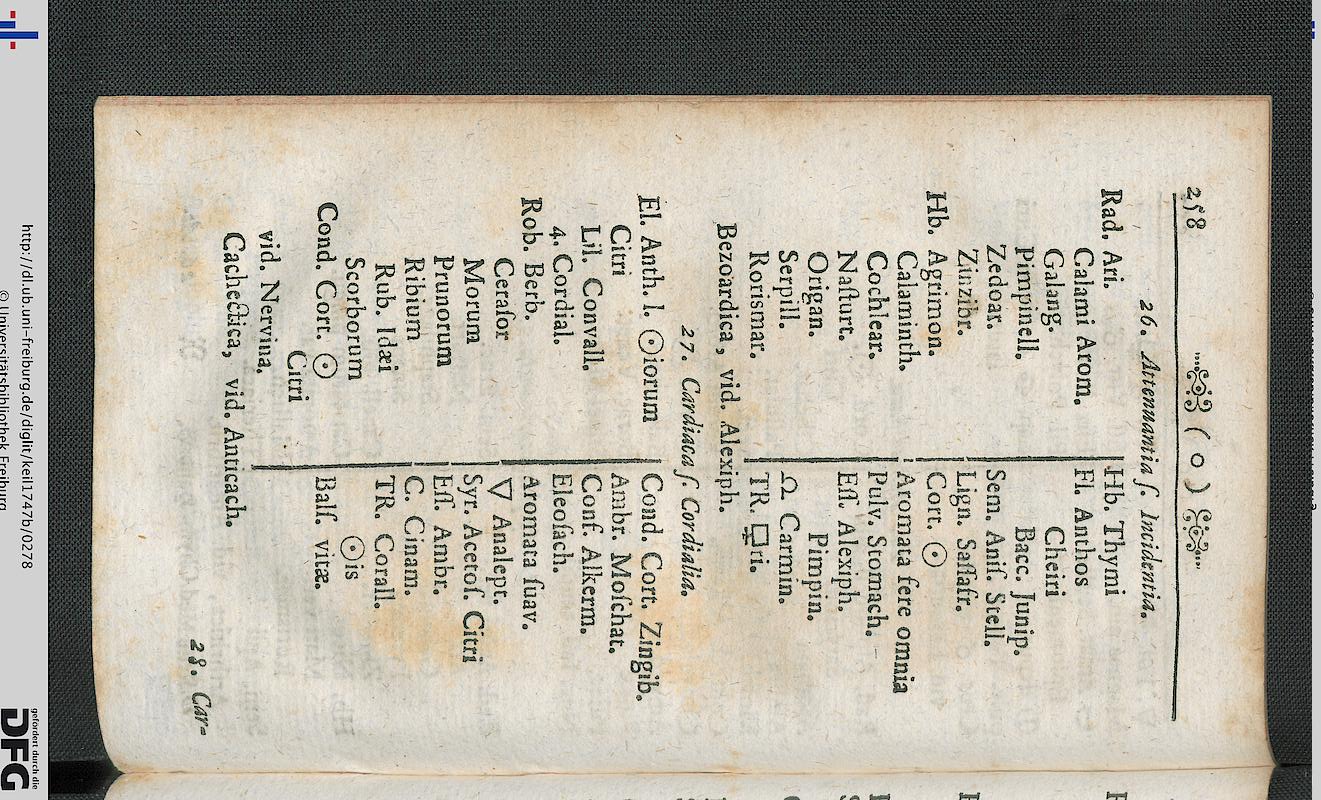 258 ( o )
26. Attenuantia ſ. Incidentia.
Rad. Ari.
Calami Arom.
Galang.
Pimpinell.
Zedoar.
Zinzibr.
Hb. Agrimon.
Calaminth.
Cochlear.
Naſturt.
Origan.
Serpill.
Rorismar.
Hb. Thymi
Fl. Anthos
Cheiri
Bacc. Junip.
Sem. Aniſ. Stell.
Lign. Saſſafr.
Cort. ☉
Aromata fere omnia
Pulv. Stomach.
Eſſ. Alexiph.
Pimpin.
Ω Carmin.
TR. □ri.
Bezoardica, vid. Alexiph.
27. Cardiaca ſ. Cordialia.
Fl. Anth. ſ. ☉iorum
Citri
Lil. Convall.
4. Cordial.
Rob. Berb.
Ceraſor
Morum
Prunorum
Ribium
Rub. Idæi
Scorborum
Cond. Cort. ☉
Citri
vid. Nervina.
Cond. Cort. Zingib.
Ambr. Moſchat.
Conf. Alkerm.
Eleoſach.
Aromata ſuav.
▽ Analept.
Syr. Acetoſ. Citri
Eſſ. Ambr.
C. Cinam.
TR. Corall.
☉is
Balſ. vitæ.
Cachectica, vid. Anticach.
28. Car-
http://dl.ub.uni-freiburg.de/diglit/keil1747b/0278
© Universitätsbibliothek Freiburg
gefördert durch die
DFG